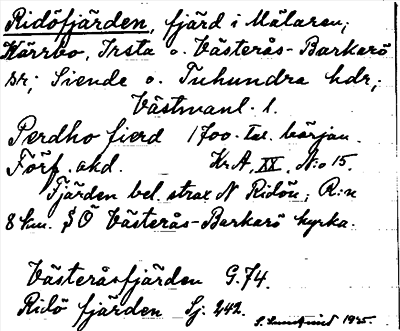 Ridöfjärden, fjärd i Mälaren;
Kärrbo, Irsta o. Västerås-Barkarö
snr; Siende o. Tuhundra hdr;
Västmanl. l.
Perdho fierd 1700-tal. början.
Förf. okd. Kr.A, XX, N:o 15.
Fjärden bel. strax N Ridön; R:n
8 km. SÖ Västerås-Barkarö kyrka.
Västeråsfjärden G.74.
Ridö fjärden Sj. 242.
1935.